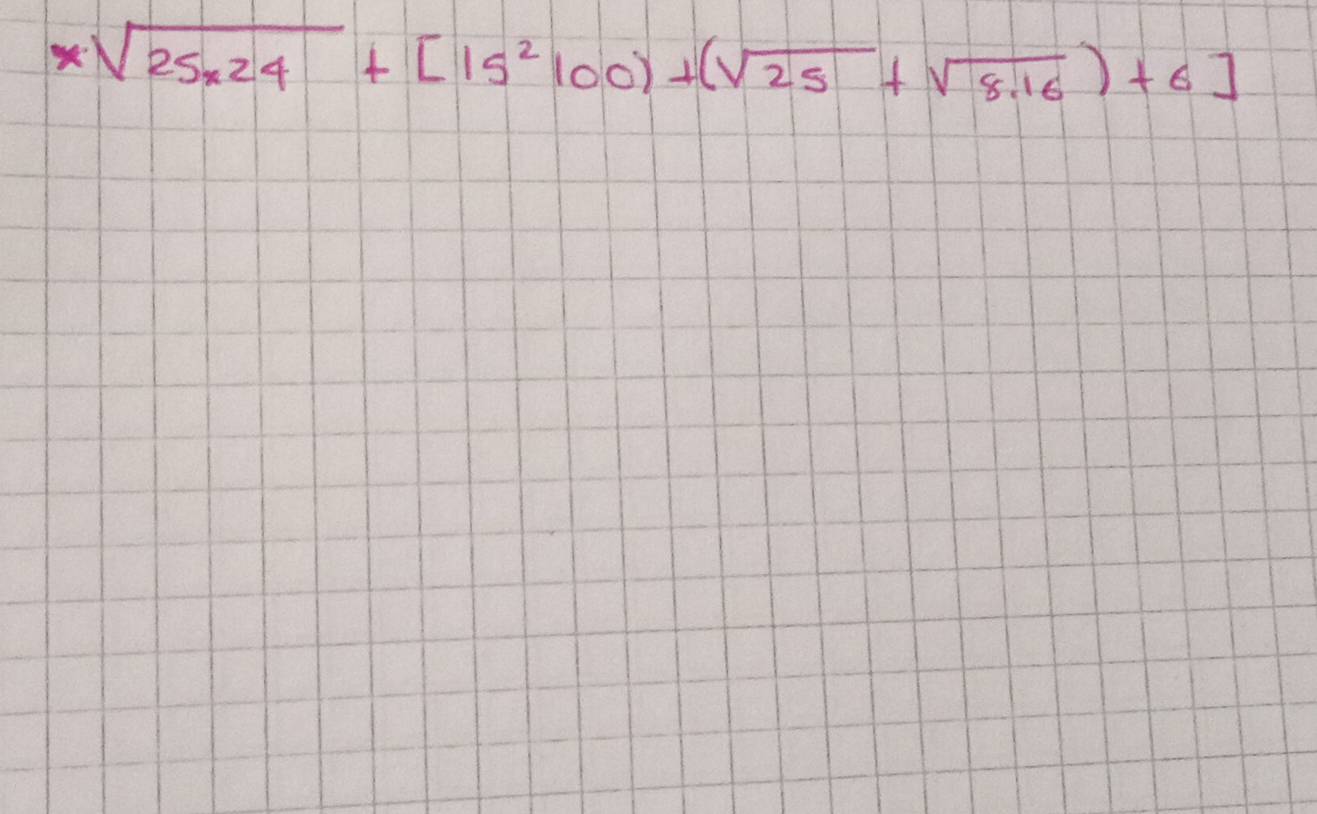 *√25x24 + [15² 100) + (√25 + √8.16) + 6]